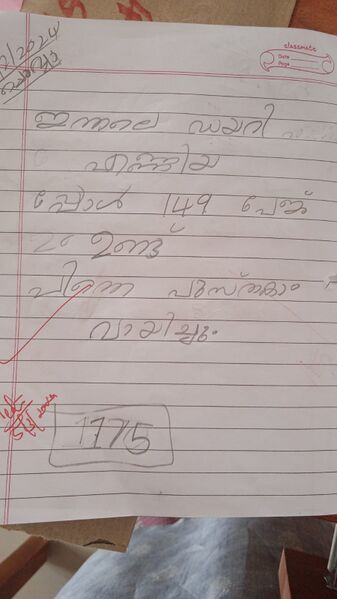 classmate
Date
Page
2/2024
ഇന്നലെ ഡയറി
എഴുതിയ
പ്പോൾ 149 പേജ്
ഉണ്ട്
പിന്നെ പുസ്തകം
വായിച്ചു.
1775